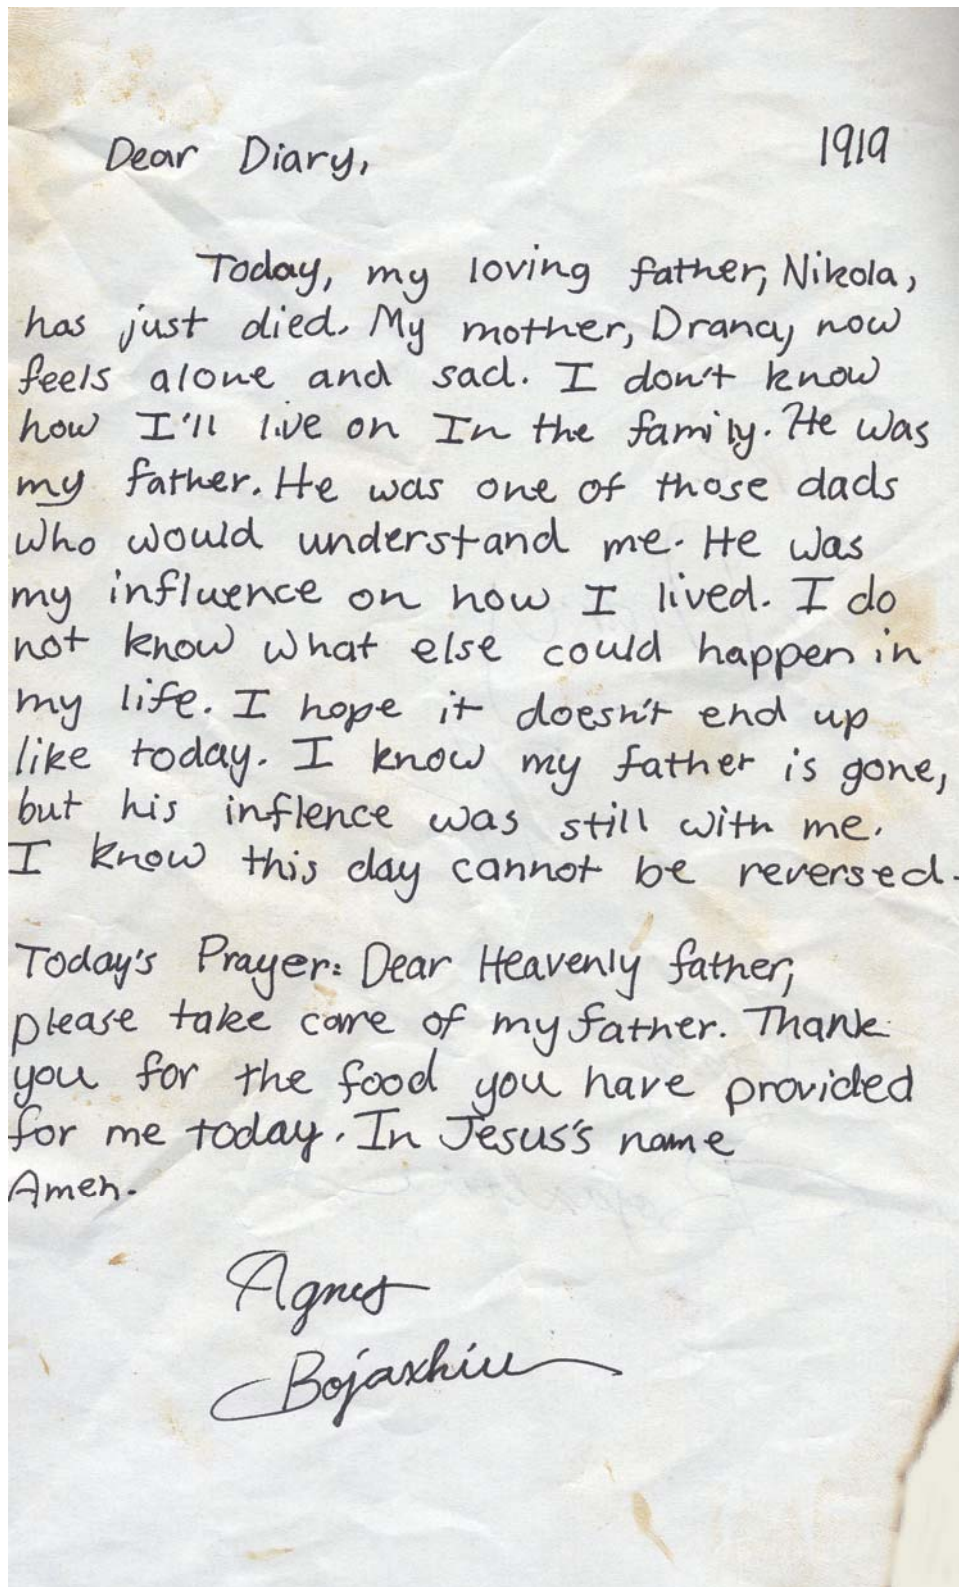 Dear Diary, 1919
Today, my loving father, Nikola,
has just died. My mother, Drana, now
feels alone and sad. I don't know
how I'll live on In the family. He was
my father. He was one of those dads
who would understand me. He was
my influence on how I lived. I do
not know what else could happen in
my life. I hope it doesn't end up
like today. I know my father is gone,
but his inflence was still with me.
I know this day cannot be reversed.
Today's Prayer: Dear Heavenly father,
please take care of my father. Thank
you for the food you have provided
for me today. In Jesus's name
Amen.
Agnes
Bojaxhiu